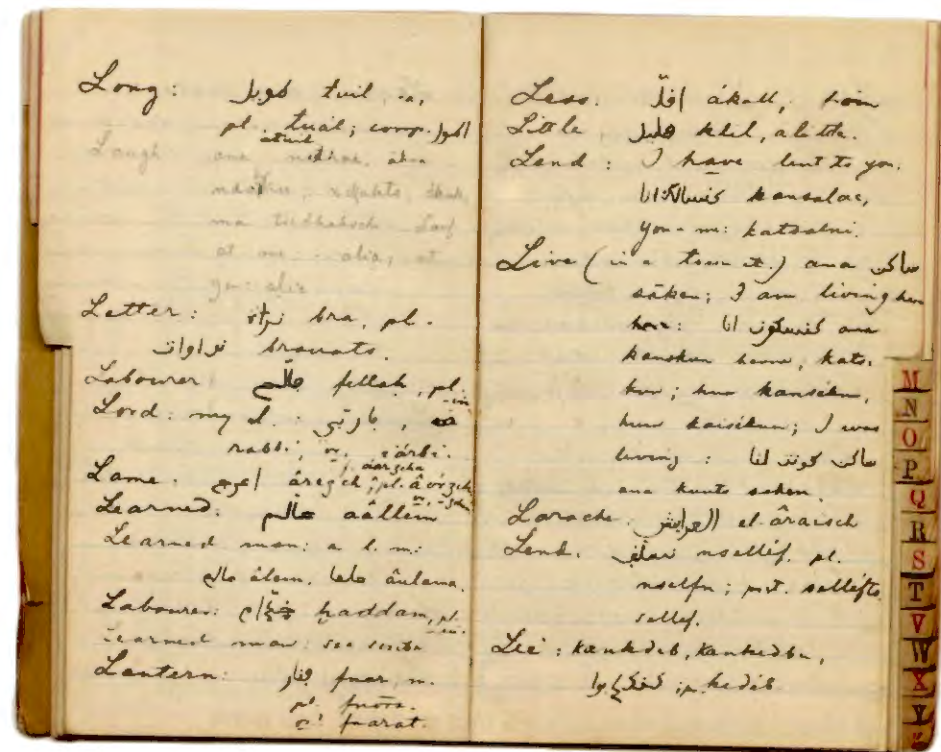 Long : طويل tuil, a,
pl. tuál; comp. اطول
atuil
Laugh ana nedhak,
ma tsedhaksch. Lauf
at me : alia, at
you: alic
Letter : براة bra, pl.
براوات brauats.
Labourer : fellah, pl. -in
Lord : my l. : ياربّي,
rabbi, or. iárbi.
Lame : اعرج áregch; pl.
Learned : عالم aállem
Learned man: a l. m:
عالم âlem. علما âulama.
Labourer : خدّام haddam, pl. -in.
Learned man: see scribe
Lantern : فنار fnar, m.
pl. fnöra.
or fnarat.
Less : اقلّ ákall,
Little, قليل klil,
Lend : I have lent to you.
kansalac,
you - me: katsalni.
Live (in a town et.) ana ساكن
sâken; I am living here
here : كنسكون انا ana
kanskun henne, kats-
kun; hua kansiknu,
hum kaisiknu; I was
living : ساكن كونت انا
ana kunts saken.
Larache. العرايش el âraisch
Lend. نسلّف nsellif. pl.
nselfu; pret. sellefts
sellef.
Lie : kankdeb, kankedbu,
p. kedeb
M
N
O
P
Q
R
S
T
V
W
X
Y
Z